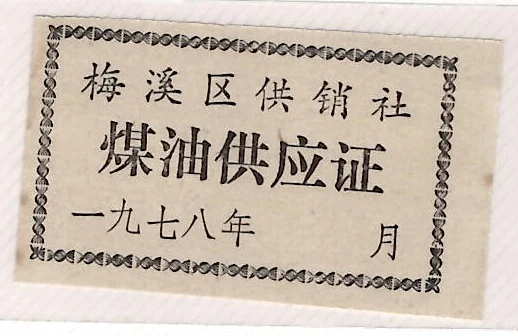 梅溪区供销社
煤油供应证
一九七八年 月